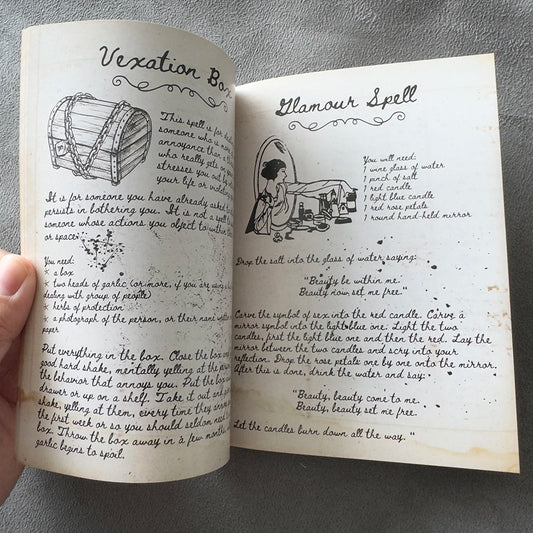 Vexation Box
This spell is for
someone who is
annoyance than a
who really gets
stresses you out by
your life or
It is for someone you have already asked
persists in bothering you. It is not a spell
someone whose actions you object to within
or space.
You need:
* a box
* two heads of garlic (or more, if you are
dealing with group of people)
* herbs of protection
* a photograph of the person, or their name
paper
Put everything in the box. Close the box
good hard shake, mentally yelling at the
the behavior that annoys you. Put the box
drawer or up on a shelf. Take it out and
shake, yelling at them, every time they
the first week or so you should seldom need
box. Throw the box away in a few months
garlic begins to spoil.
Glamour Spell
You will need:
1 wine glass of water
1 pinch of salt
1 red candle
1 light blue candle
1 red rose petals
1 round hand-held mirror
Drop the salt into the glass of water saying:
"Beauty be within me.
Beauty now set me free."
Carve the symbol of sex into the red candle. Carve a
mirror symbol into the light blue one. Light the two
candles, first the light blue one and then the red. Lay the
mirror between the two candles and scry into your
reflection. Drop the rose petals one by one onto the mirror.
After this is done, drink the water and say:
"Beauty, beauty come to me.
Beauty, beauty set me free.
Let the candles burn down all the way. "